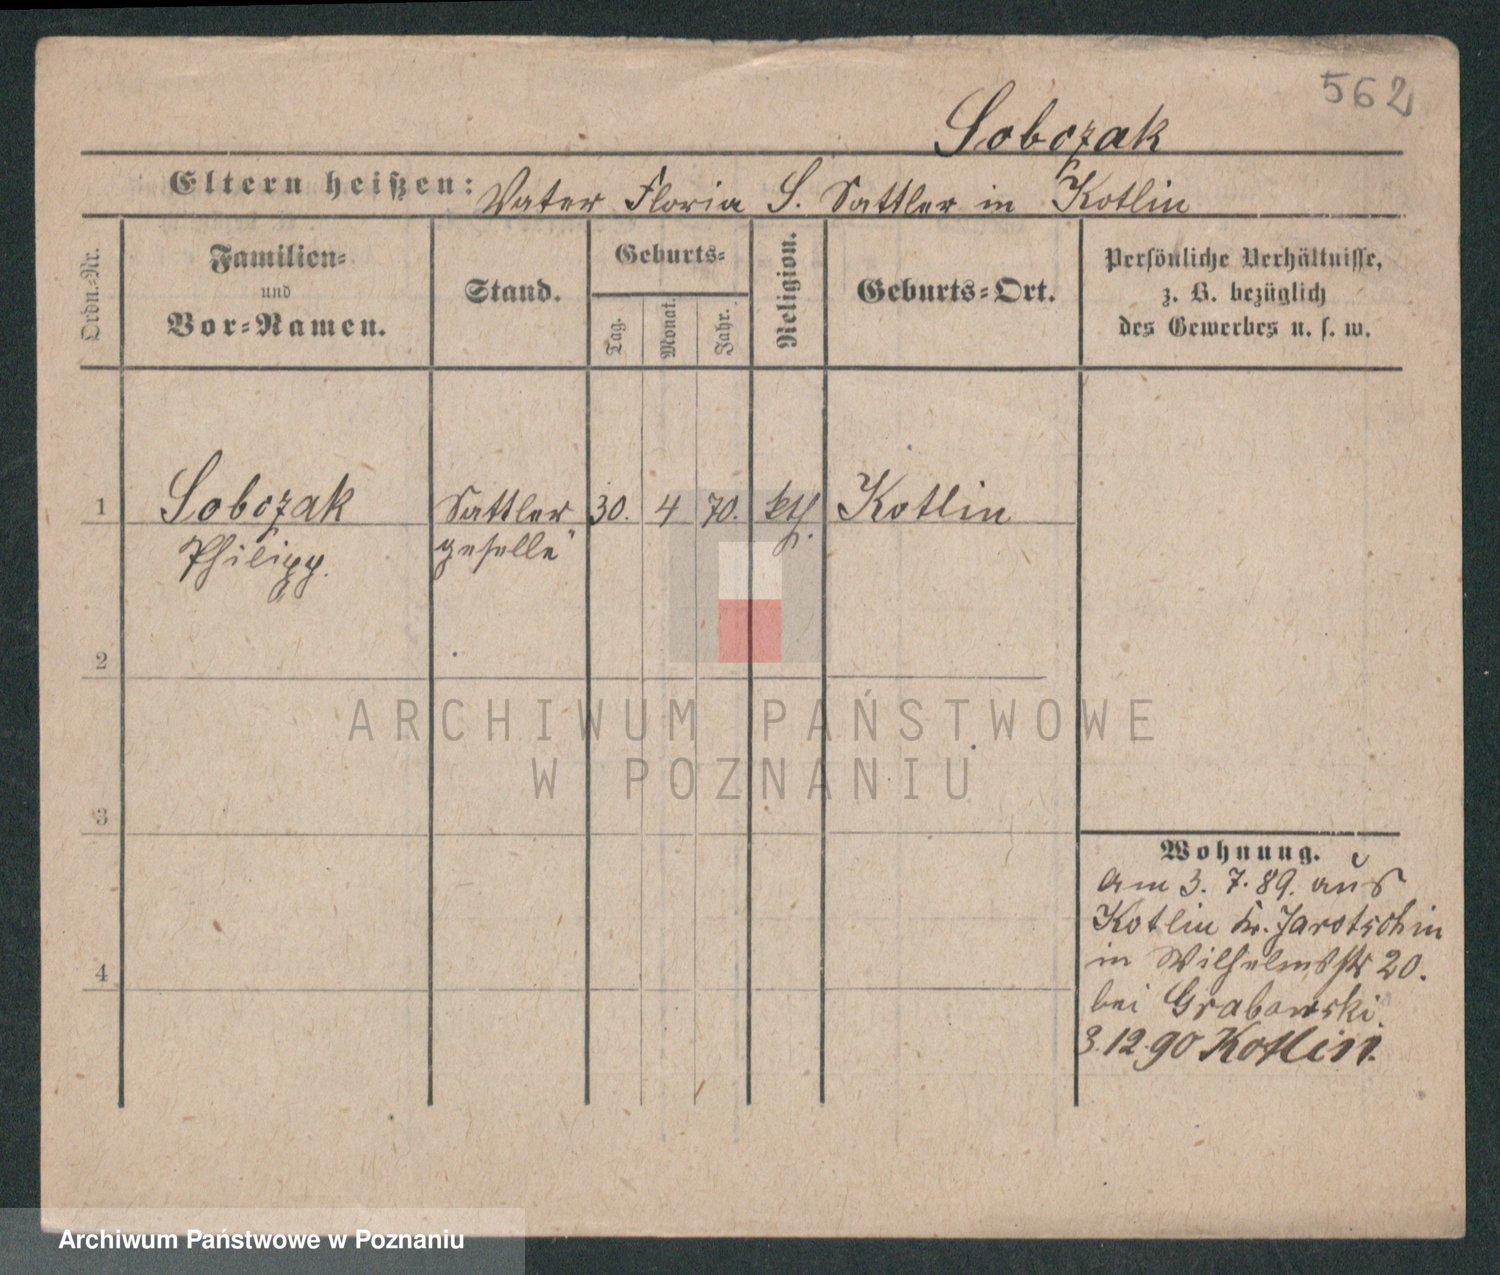 562
Sobczak
Eltern heißen: Vater Floria S. Sattler in Kotlin
Ordn.-Nr.
Familien-
und
Vor-Namen.
Stand.
Geburts-
Tag.
Monat.
Jahr.
Religion.
Geburts-Ort.
Persönliche Verhältnisse,
z. B. bezüglich
des Gewerbes u. s. w.
1 Sobczak Sattler 30. 4 70. kth. Kotlin
Philipp. geselle
2
3
4
Wohnung.
am 3. 7. 89. aus
Kotlin Kr. Jarotschin
in Wilhelmsstr 20.
bei Grabowski.
3.12.90 Kotlin.
ARCHIWUM PAŃSTWOWE
W POZNANIU
Archiwum Państwowe w Poznaniu